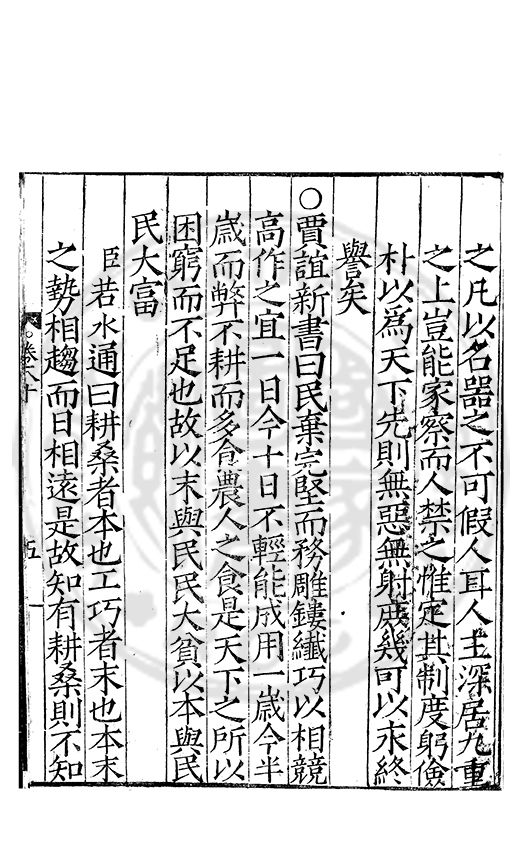 之凡以名器之不可假人耳人主深居九重
之上豈能家察而人禁之惟定其制度躬儉
朴以為天下先則無惡無射庶幾可以求終
譽矣
○賈誼新書曰民棄完堅而務雕鏤纖巧以相競
高作之宜一日今十日不輕能成用一歲今半
歲而弊不耕而多食農人之食是天下之所以
困窮而不足也故以末與民民大貧以本與民
民大富
臣若水通曰耕桑者本也工巧者末也本末
之勢相趨而日相遠是故知有耕桑則不知
卷六十
五